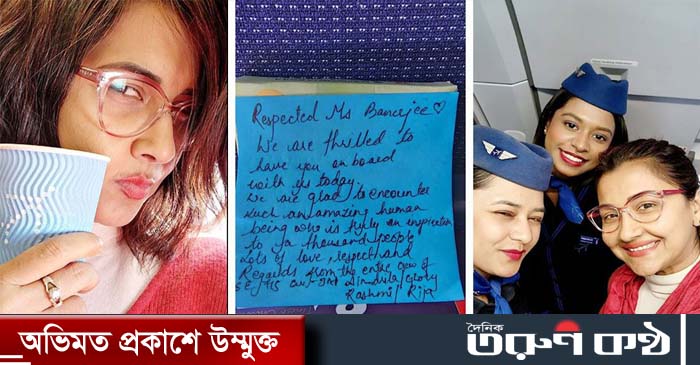 Respected Ms Banerjee ♡
We are thrilled to
have you on board
with us today.
We are glad to encounter
such an amazing human
being who is truly an inspiration
to a thousand people
Lots of love, respect and
Regards from the entire crew of
Rashmi / Rija
অভিমত প্রকাশে উম্মুক্ত
দৈনিক
তরুণ কণ্ঠ